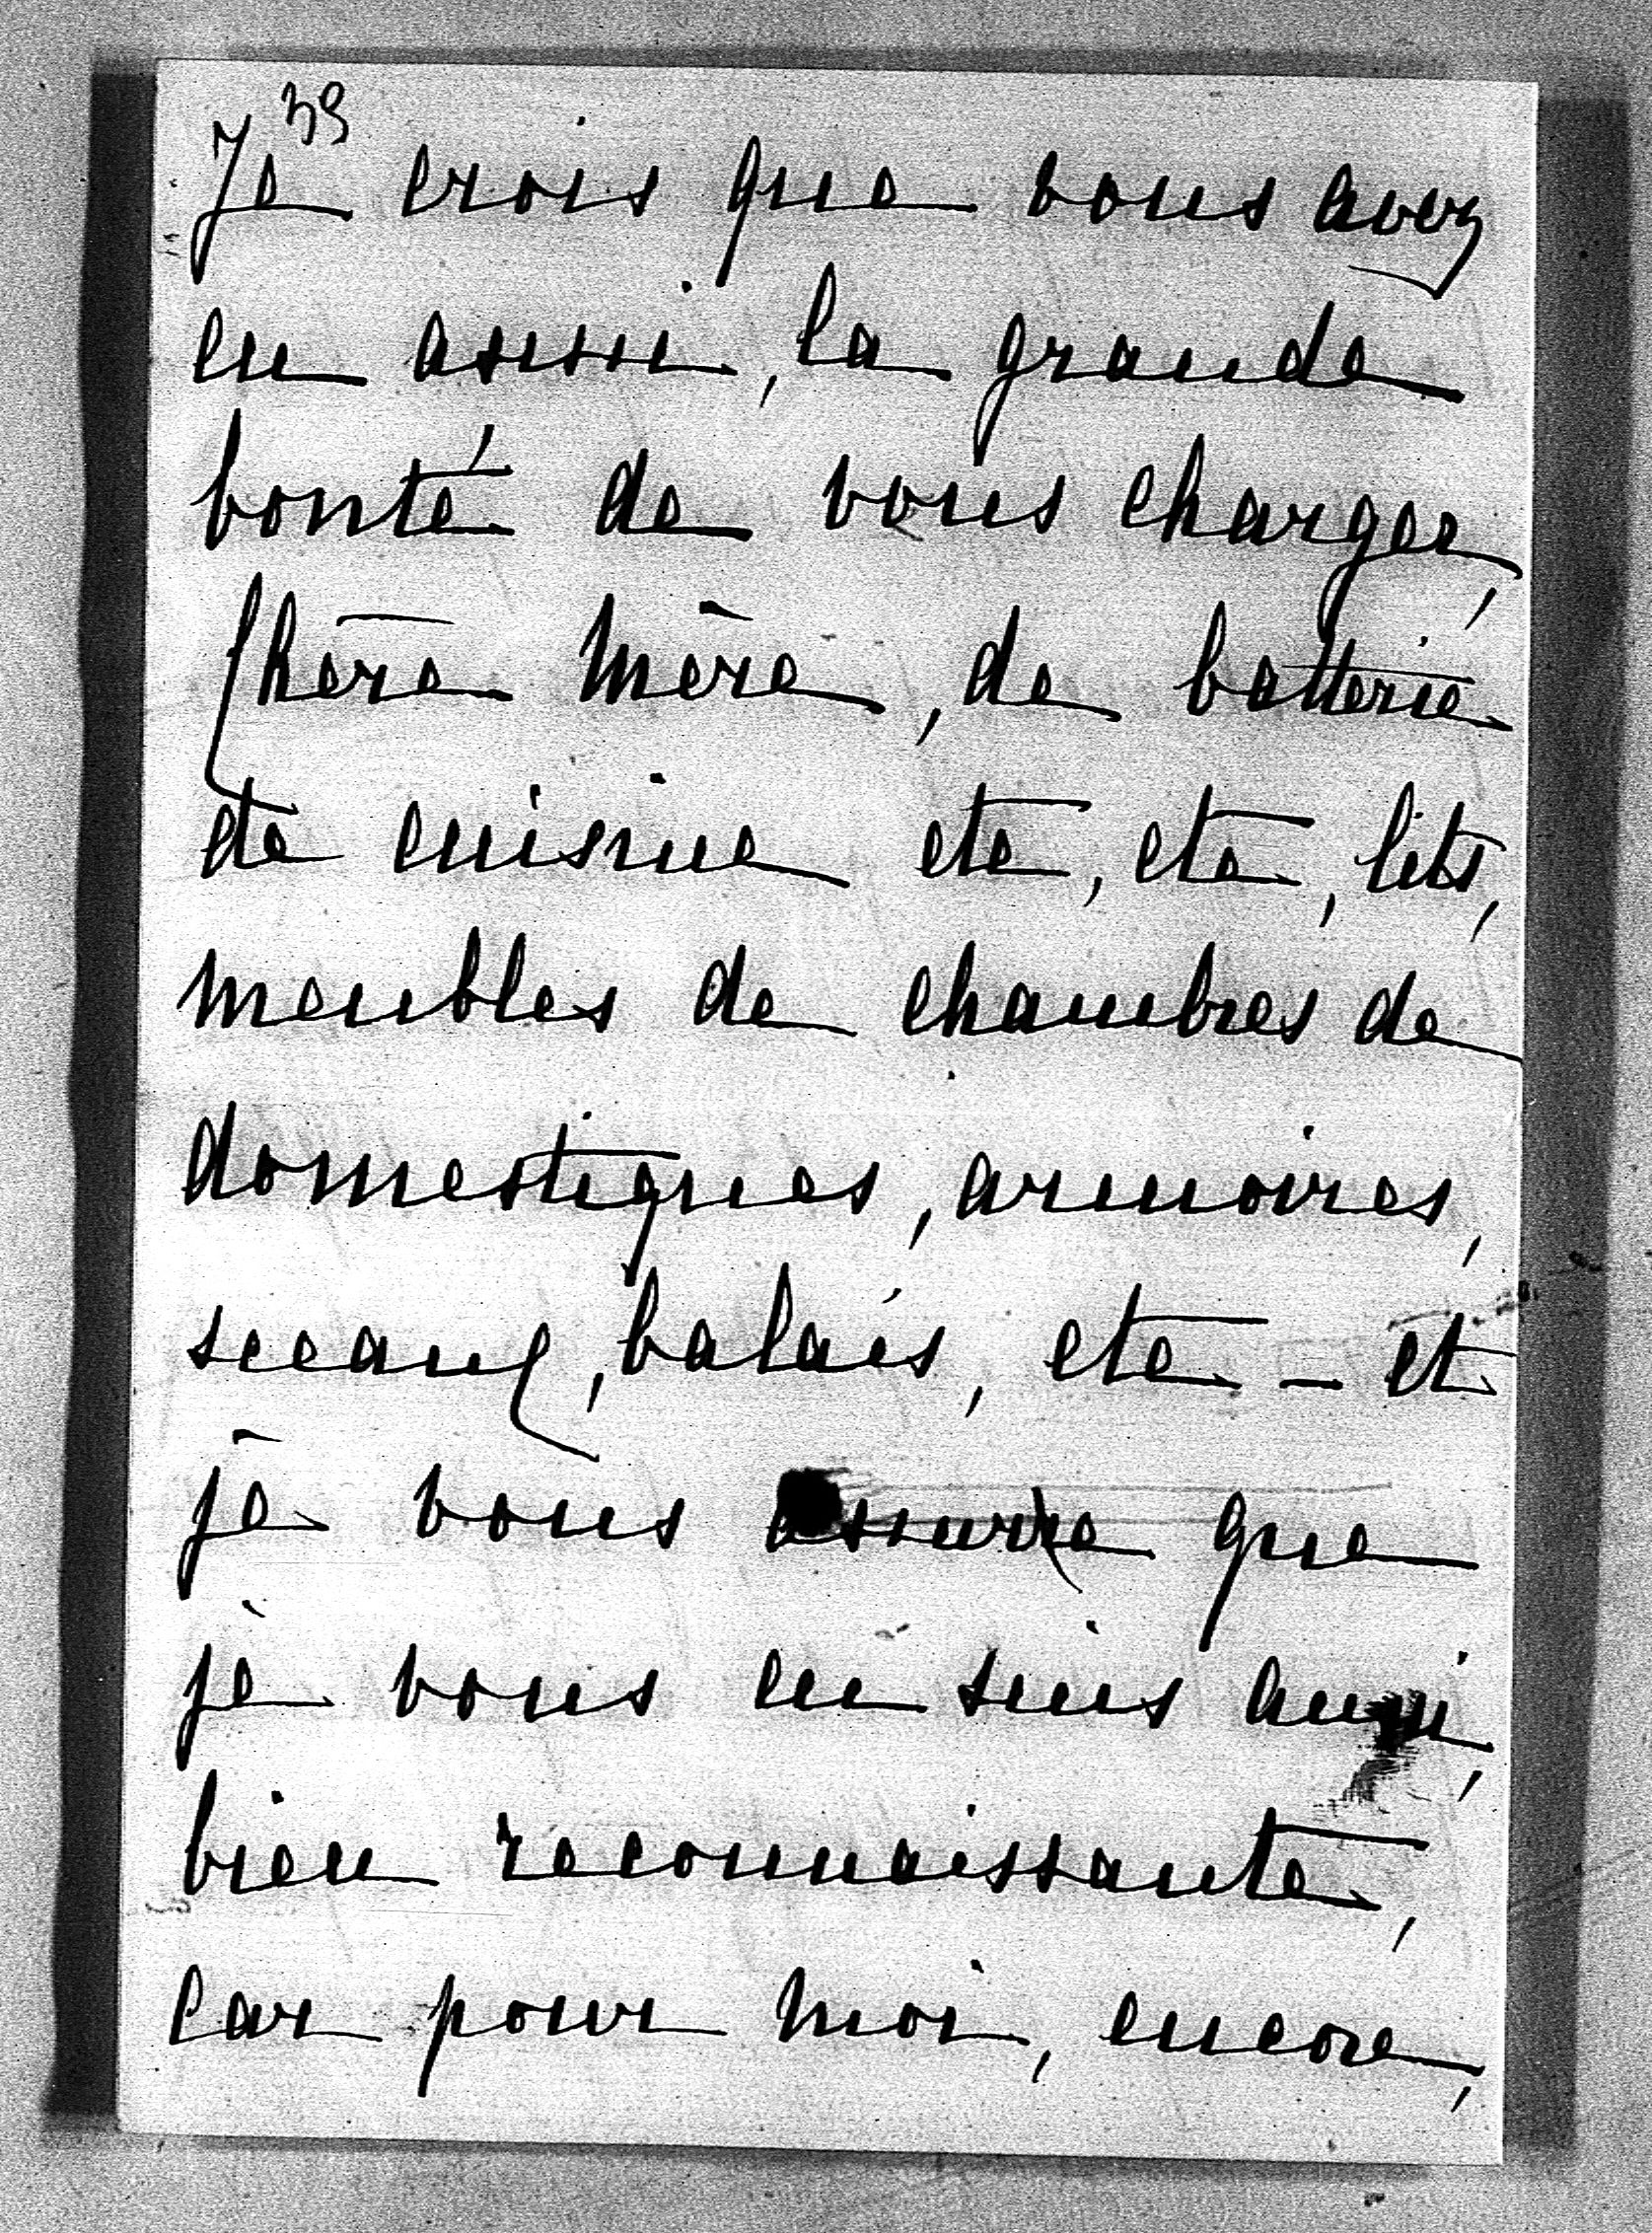 39
Je crois que vous avez
eu aussi, la grande
bonté de vous charger,
chère Mère, de batterie
de cuisine etc, etc, lits,
meubles de chambres de
domestiques, armoires,
sceaux, balais, etc - et
je vous assure que
je vous en suis aussi,
bien reconnaissante,
car pour moi, encore,